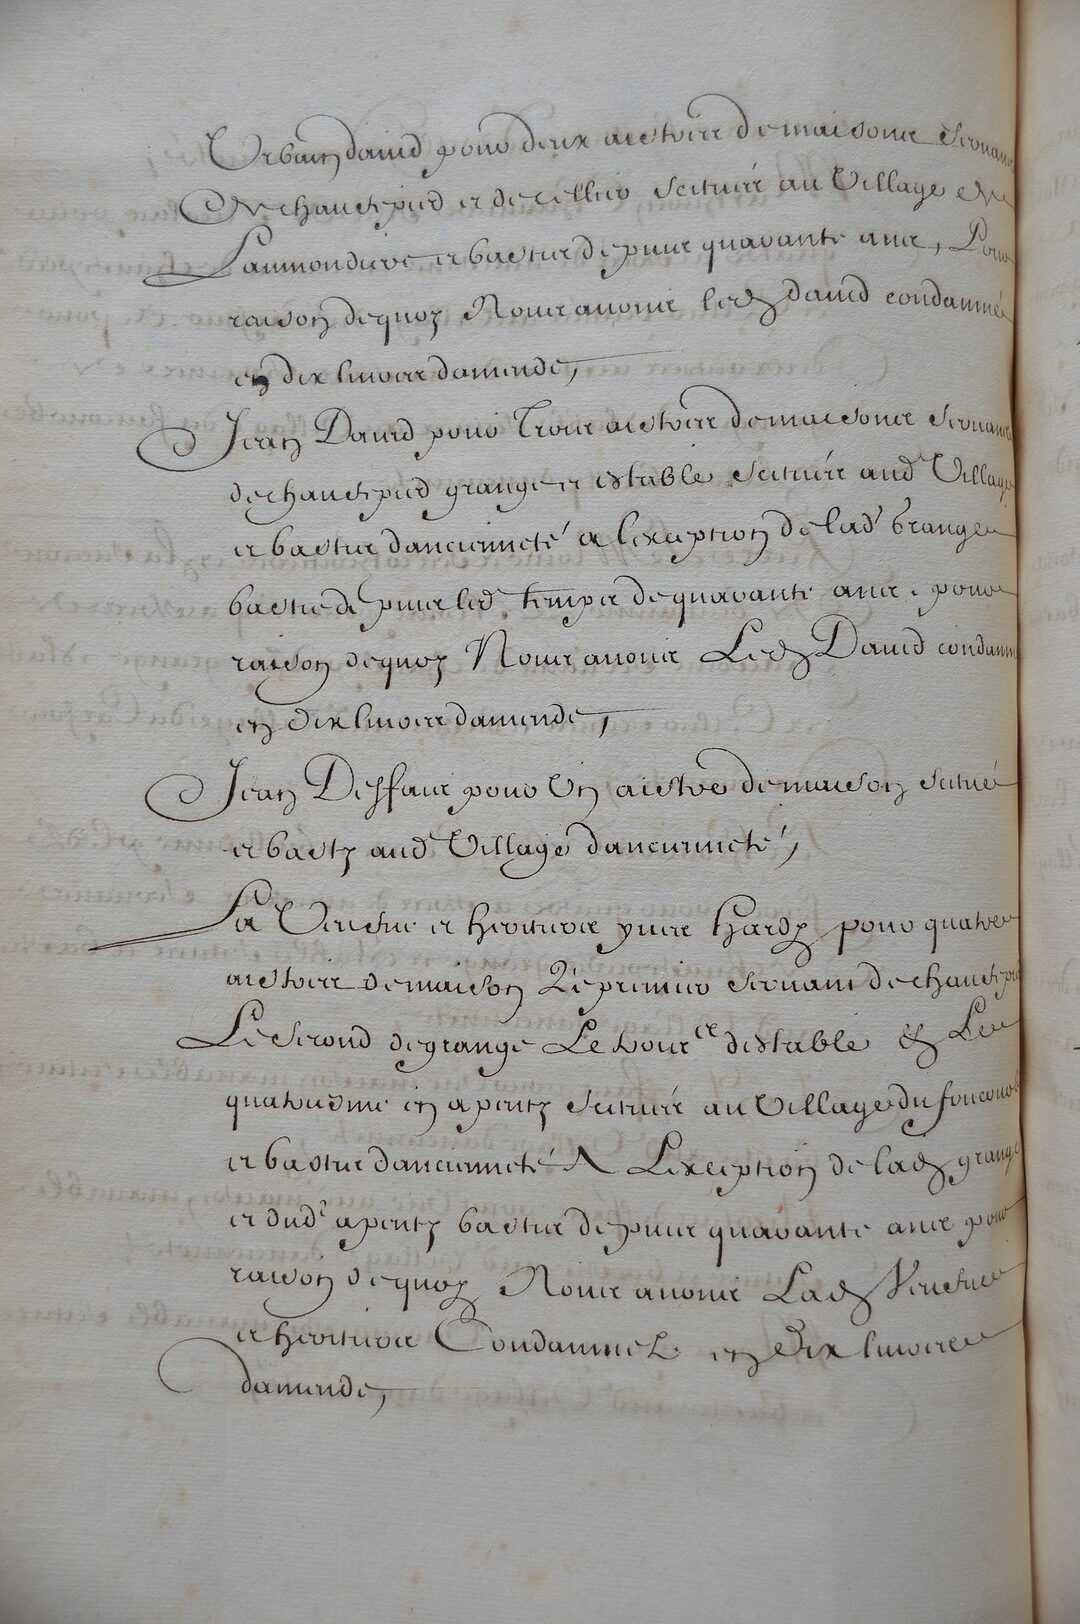 Urbain david pour deux aistres de maisons servans
De chaude pied et de cellier scituez au Village De
Laumondiere et basties depuis quarante ans, Pour
raison de quoy Nous avons led david condamné
en dix livres damende,
Jean David pour Trois aistres de maisons servans
de chaude pied grange et estable scituez aud Village
et basties dancienneté a lexception de lad grange
bastie depuis led temps de quarante ans pour
raison de quoy Nous avons Led David condamné
en dix livres damende,
Jean Desfaix pour Un aistre de maison scitué
et basty aud Village dancienneté,
La Veufve et heritiers yves Hardy pour quatre
aistres de maison Le premier servant de chaude pied
Le second de grange Le trois.e destable & Le
quatriesme en apenty scituez au Village du
et basties dancienneté A Lexception de lad grange
et dud apenty basties depuis quarante ans pour
raison de quoy Nous avons Lad Veufve
et heritiers Condamnez en Dix livres
damende,